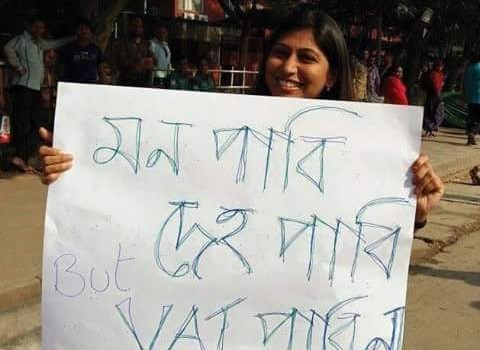 মন পাবি
দেহ পাবি
But
VAT পাবি না